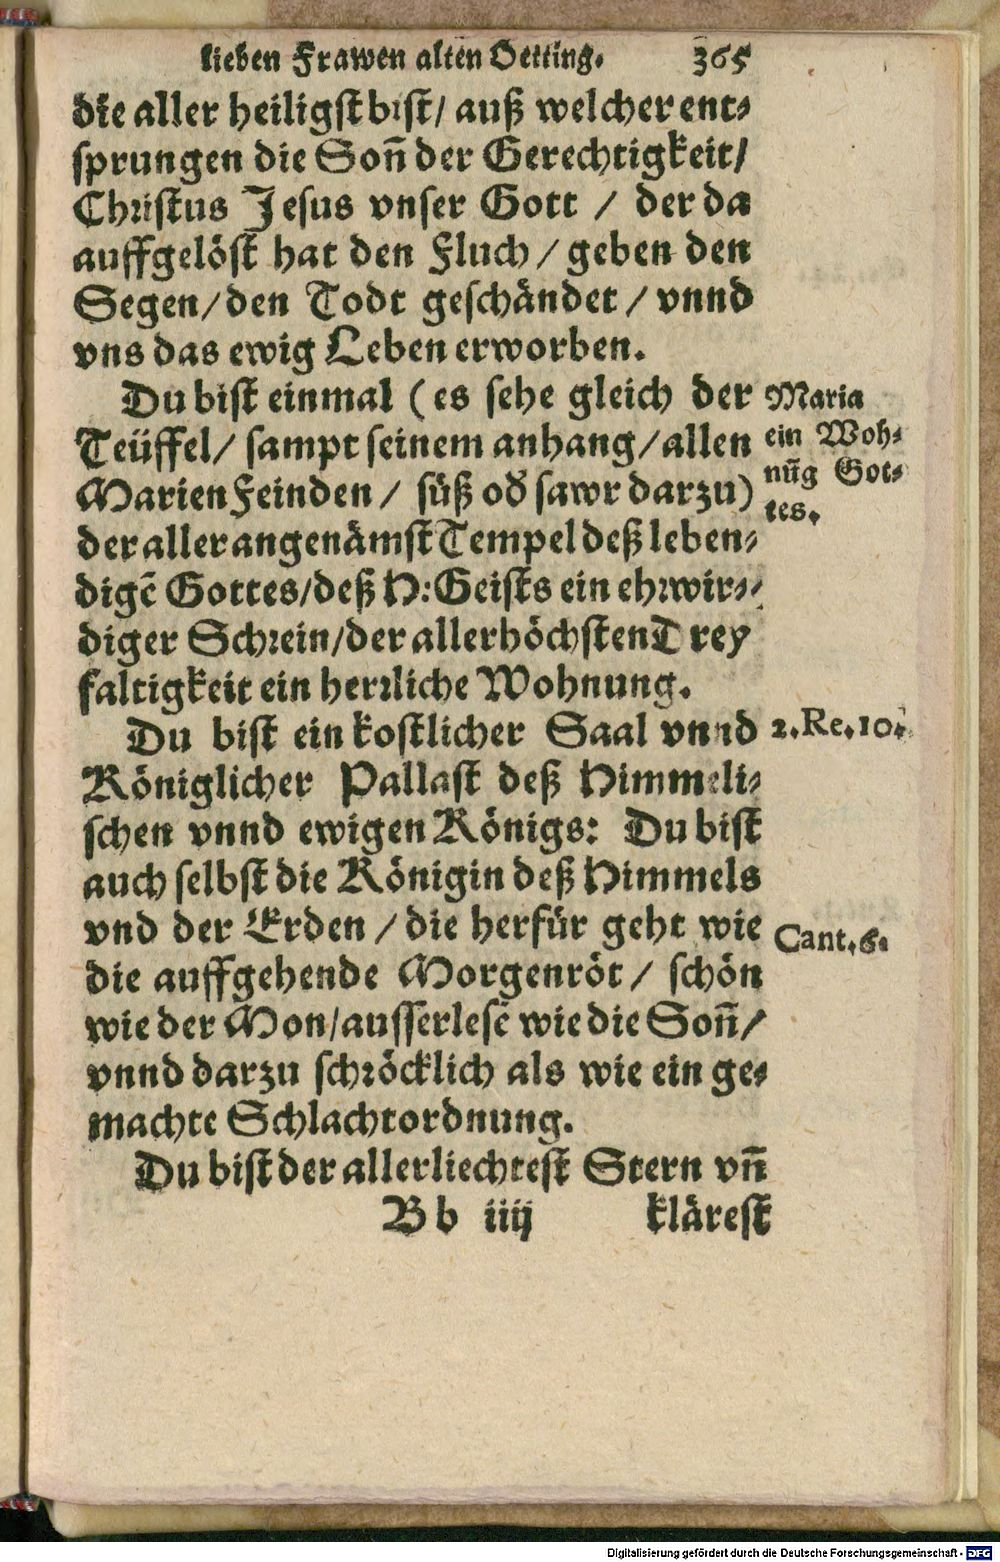 lieben Frawen alten Oetting. 365
die aller heiligst bist/ auß welcher ent⸗
sprungen die Soñ der Gerechtigkeit/
Christus Jesus vnser Gott / der da
auffgelöst hat den Fluch / geben den
Segen/den Todt geschändet / vnnd
vns das ewig Leben erworben.
Du bist einmal (es sehe gleich der
Teüffel/ sampt seinem anhang/allen
Marien Feinden / süß oď sawr darzu)
der aller angenämst Tempel deß leben⸗
digē Gottes/deß H: Geists ein ehrwir⸗
diger Schrein/der allerhöchsten Drey
faltigkeit ein herrliche Wohnung.
Maria
ein Woh⸗
nūg Got⸗
tes.
Du bist ein kostlicher Saal vnnd
2. Re. 10.
Königlicher Pallast deß Himmeli⸗
schen vnnd ewigen Königs: Du bist
auch selbst die Königin deß Himmels
vnd der Erden / die herfür geht wie
Cant. 6.
die auffgehende Morgenröt / schön
wie der Mon/ausserlesē wie die Soñ/
vnnd darzu schröcklich als wie ein ge⸗
machte Schlachtordnung.
Du bist der allerliechtest Stern vñ
Bb iiij klärest
Digitalisierung gefördert durch die Deutsche Forschungsgemeinschaft - DFG